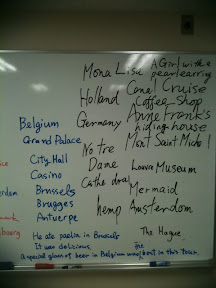 Mona Lisa
A Girl with a
pearl earring
Holland
Canal Cruise
Coffee Shop
Germany
Anne Frank's
hiding house
Mont Saint Michel
Notre
Dame
Cathedral
Louvre Museum
Mermaid
Hemp Amsterdam
The Hague
The
Belgium
Grand Palace
City Hall
Casino
Brussels
Brugges
Antwerpe
He ate paella in Brussels
It was delicious.
A special glass of beer in Belgium was/sent in this town.